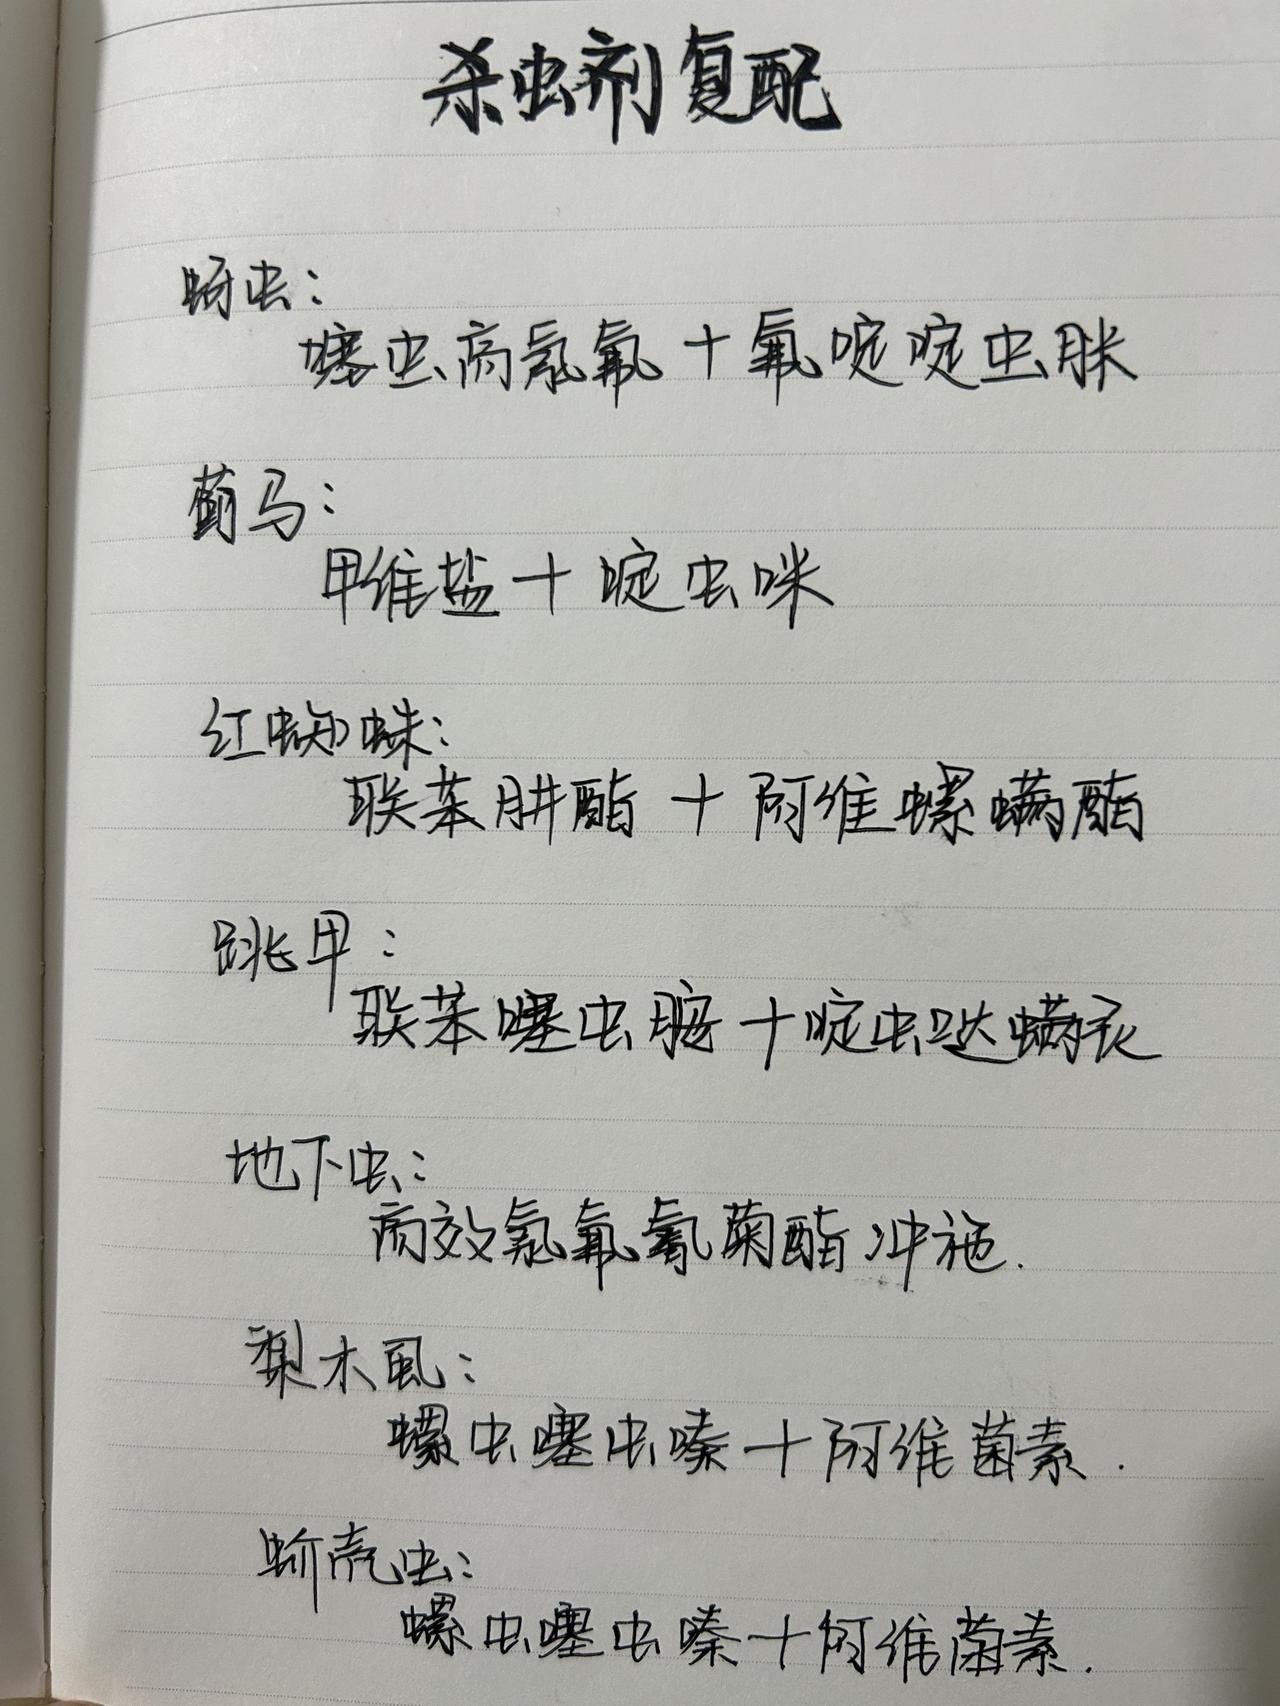 杀虫剂复配
蚜虫:
噻虫高氯氟+氟啶啶虫脒
蓟马:
甲维盐+啶虫咪
红蜘蛛:
联苯肼酯+阿维螺螨酯
跳甲:
联苯噻虫胺+啶虫哒螨灵
地下虫:
高效氯氟氰菊酯冲施.
梨木虱:
螺虫噻虫嗪+阿维菌素.
蚧壳虫:
螺虫噻虫嗪+阿维菌素.